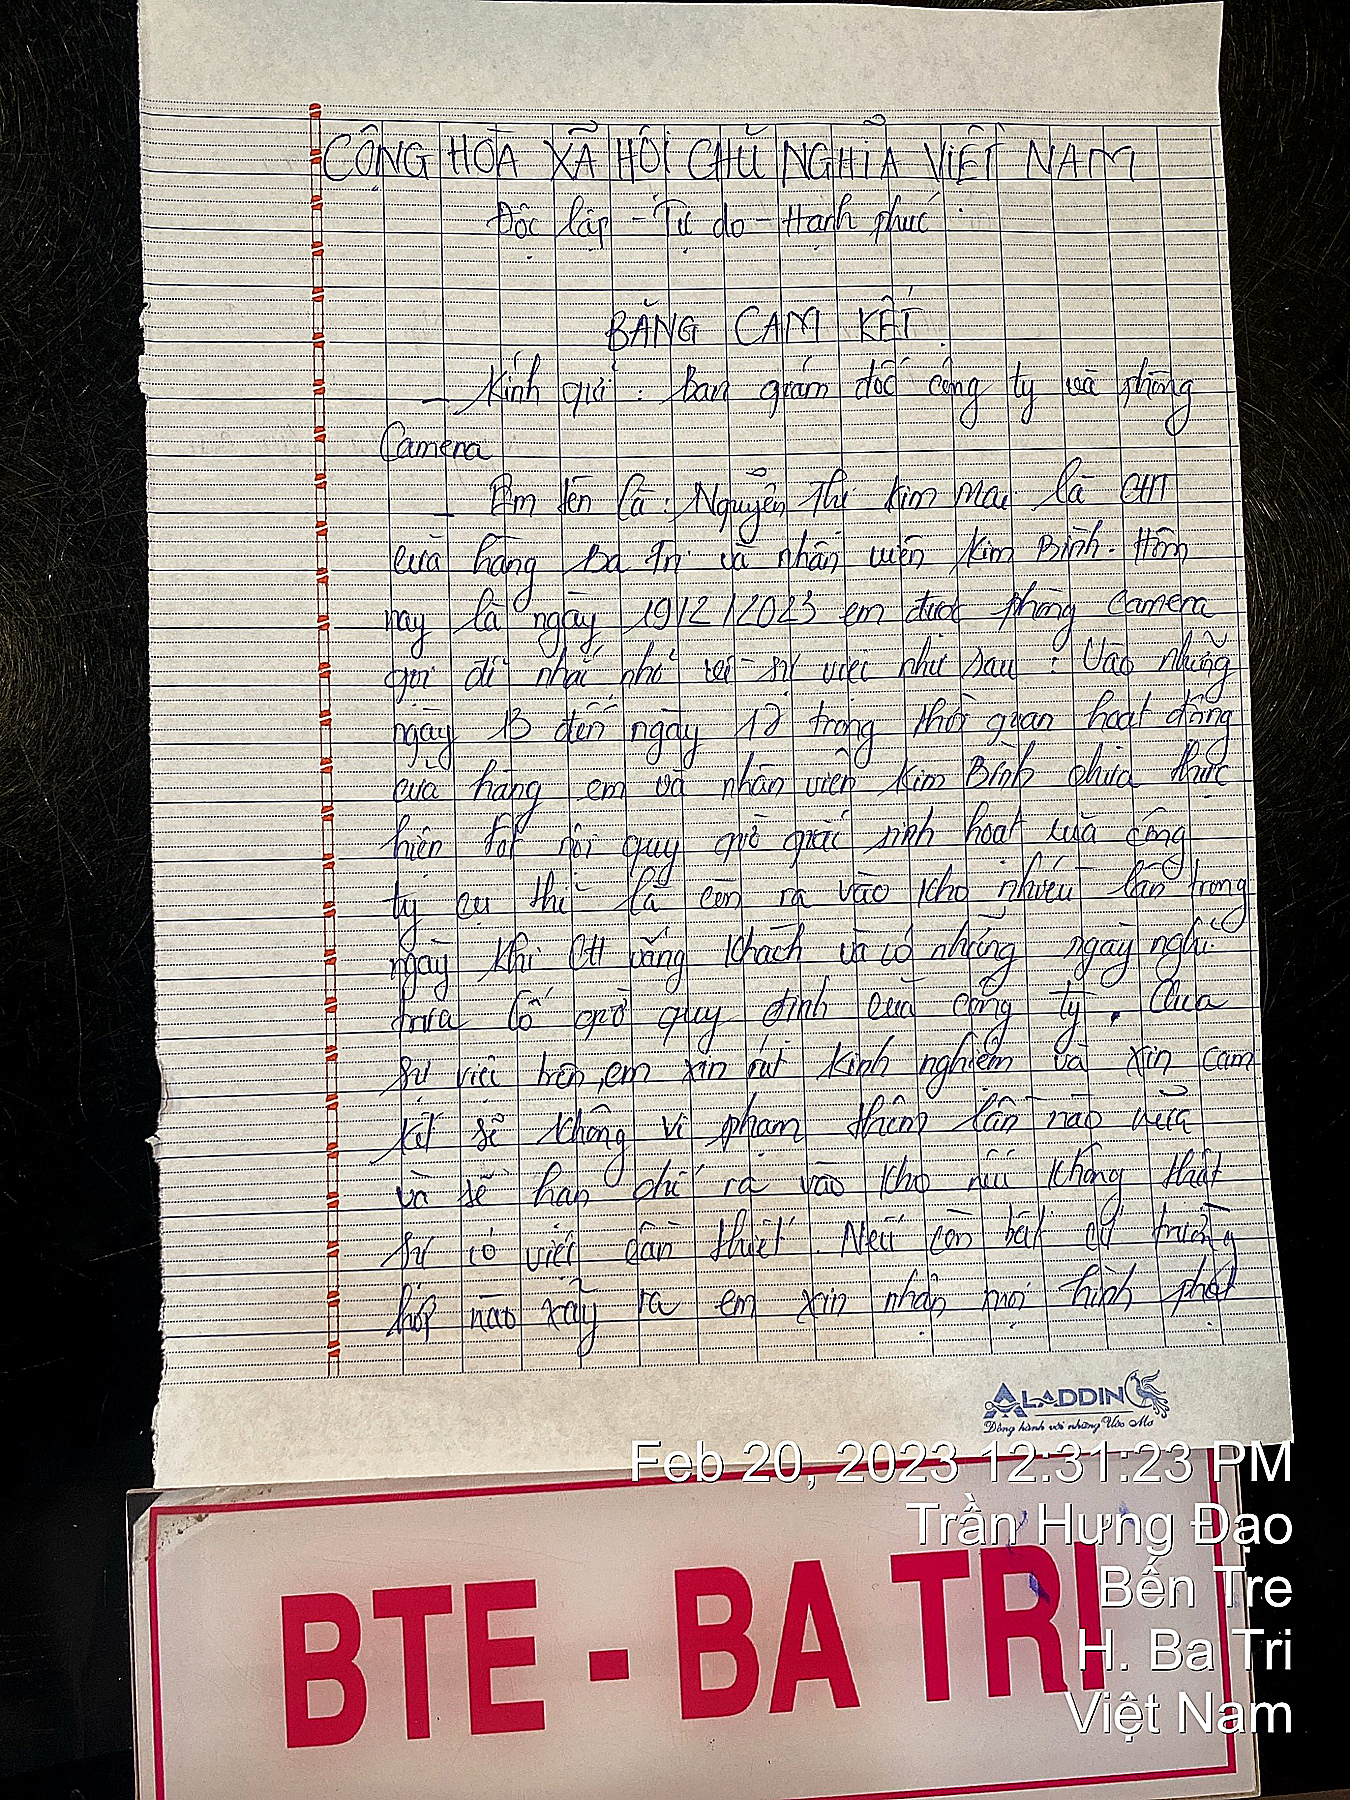 CÔNG HÒA XÃ HỘI CHŨ NGHĨA VIỆT NAM
Độc lập - Tự do - Hạnh phúc
BẰNG CAM KẾT
- Kính gửi : Ban giám đốc công ty và phòng
Camera
- Em tên là : Nguyễn Thị Kim Mai là CHT
cửa hàng Ba Tri và nhân viên Kim Bình. Hôm
nay là ngày 19/2/2023 em được phòng Camera
gọi để nhắc nhở về sự việc như sau : Vào những
ngày 13 đến ngày 17 trong thời gian hoạt động
cửa hàng em và nhân viên Kim Bình chưa thực
hiện tốt nội quy giờ giấc sinh hoạt của công
ty cụ thể là còn ra vào kho nhiều lần trong
ngày khi CH vắng khách và có những ngày nghỉ
trưa lố giờ quy định của công ty. Qua
sự việc trên, em xin rút kinh nghiệm và xin cam
kết sẽ không vi phạm thêm lần nào nữa
và sẽ hạn chế ra vào kho nếu không thật
sự có việc cần thiết. Nếu còn bất cứ trường
hợp nào xảy ra em xin nhận mọi hình phạt
ALADDIN
Đồng hành với những Ước Mơ
Feb 20, 2023 12:31:23 PM
Trần Hưng Đạo
Bến Tre
H. Ba Tri
Việt Nam
BTE - BA TRI